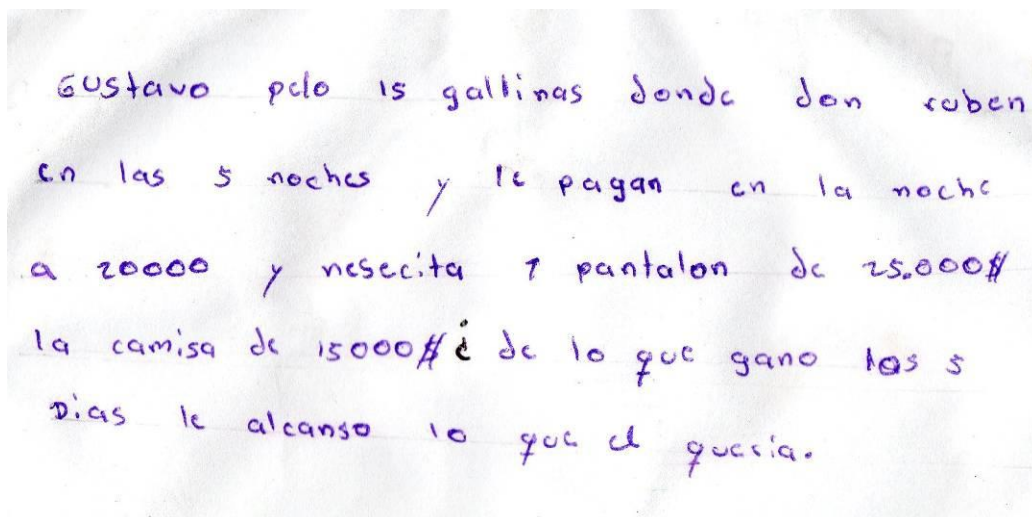 Gustavo pelo 15 gallinas donde don ruben
en las 5 noches y le pagan en la noche
a 20000 y nesecita 1 pantalon de 25.000$
la camisa de 15000$ ¿ de lo que gano los 5
Dias le alcanso lo que el queria.